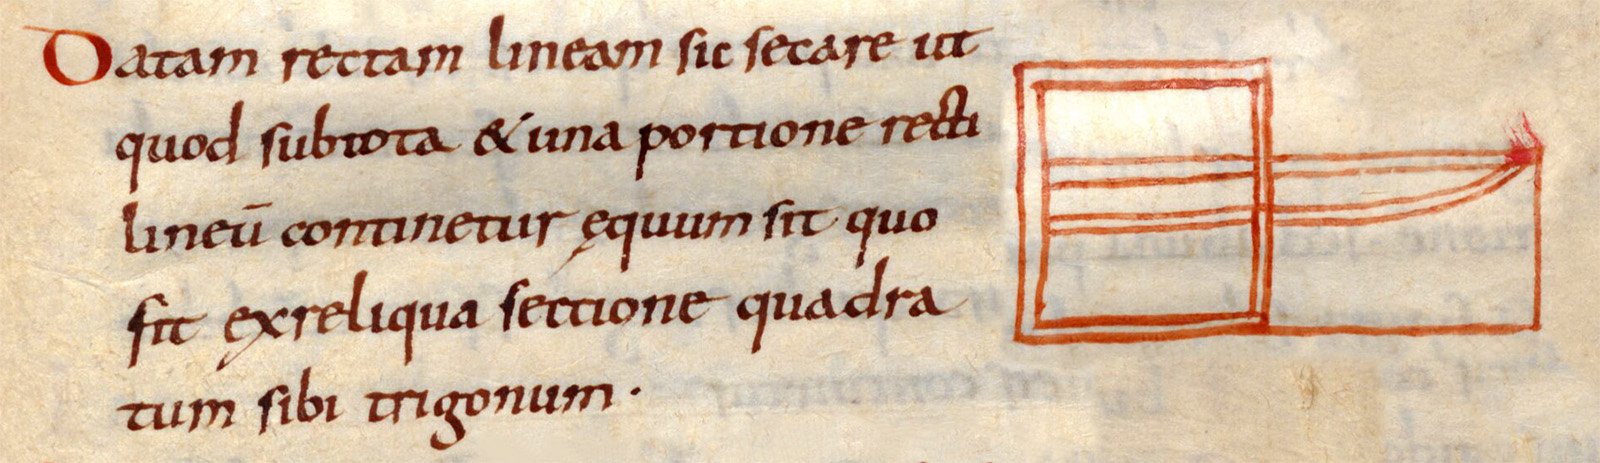 Datam rectam lineam sic secare ut
quod subtota & una portione recti
lineū continetur ęquum sit quo
sit exreliqua sectione quadra
tum sibi trigonum ·